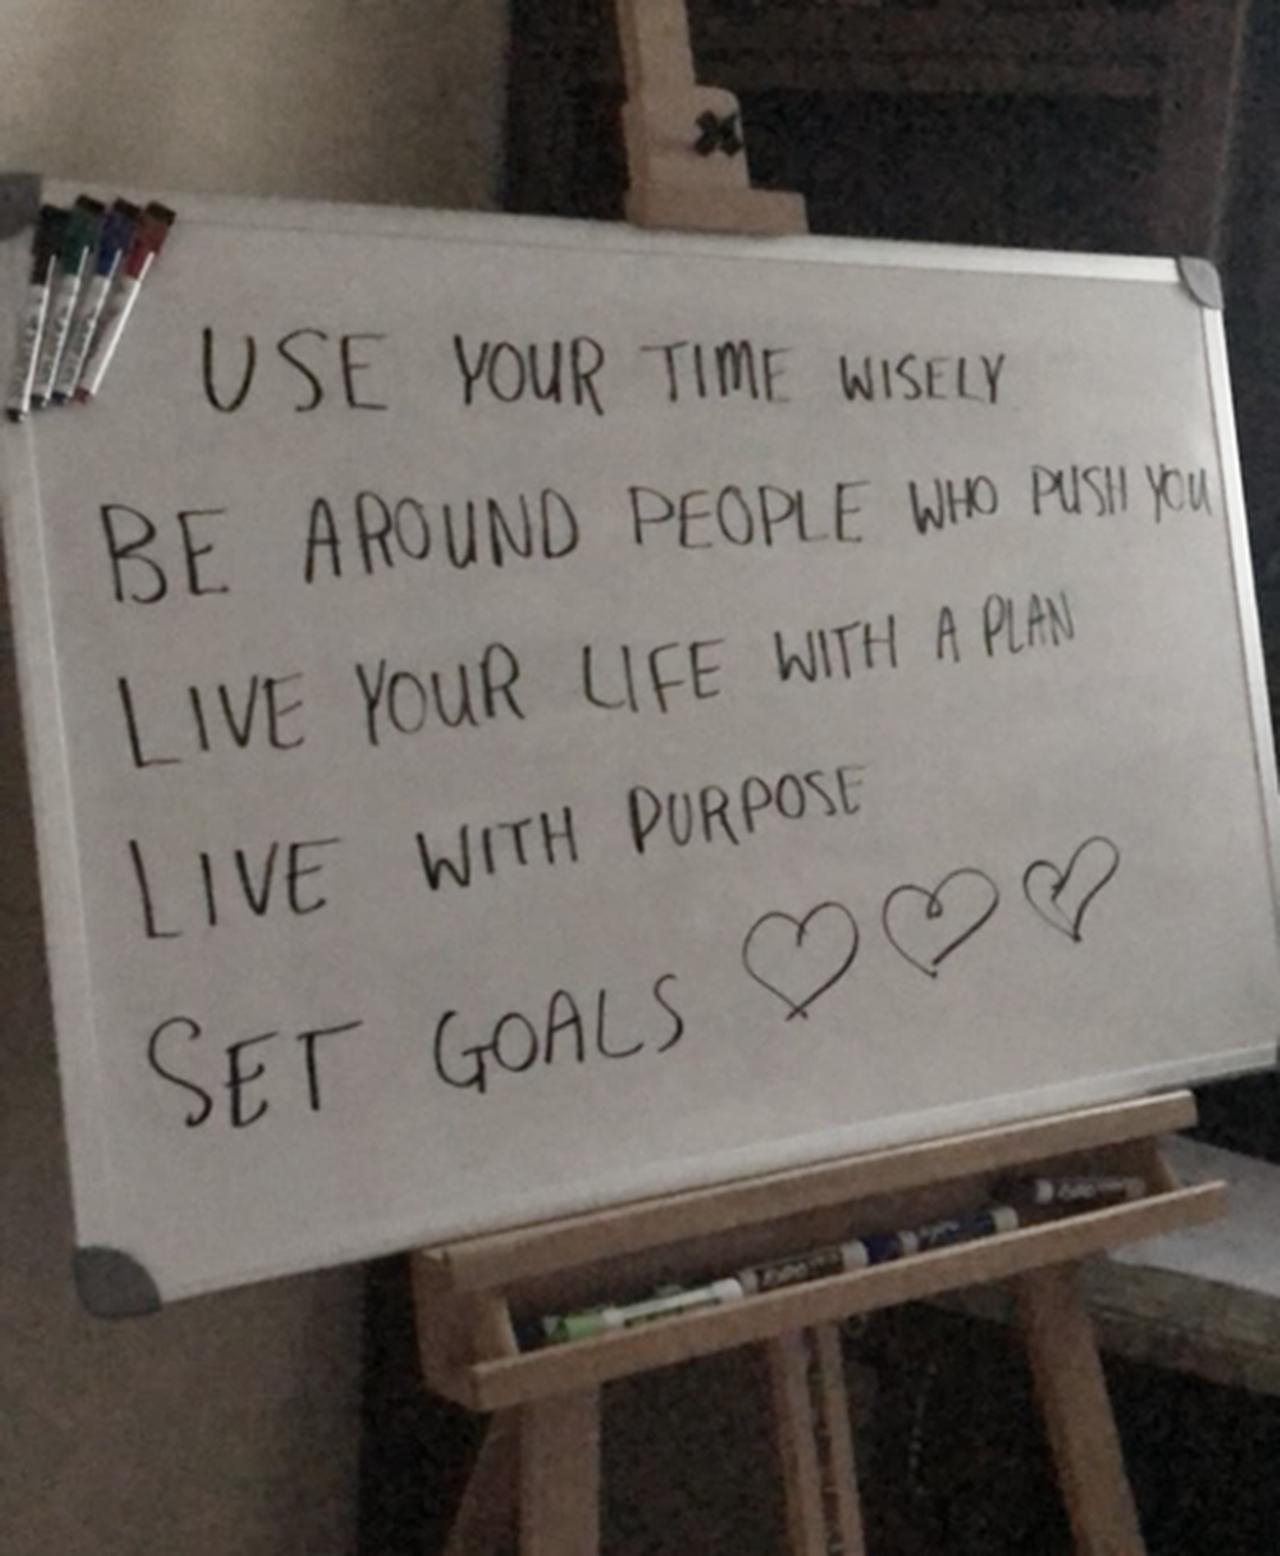 USE YOUR TIME WISELY
BE AROUND PEOPLE WHO PUSH YOU
LIVE YOUR LIFE WITH A PLAN
LIVE WITH PURPOSE
SET GOALS ♡♡♡